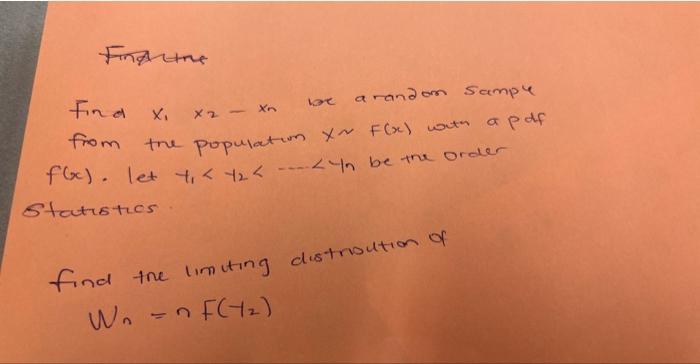 Find the
Find X₁ X₂ — Xn be a random sample
from the population X~ F(x) with a pdf
f(x). let Y₁ < Y₂ < ----< Yn be the order
Statistics.
find the limiting distribution of
Wn = n F(Y₂)